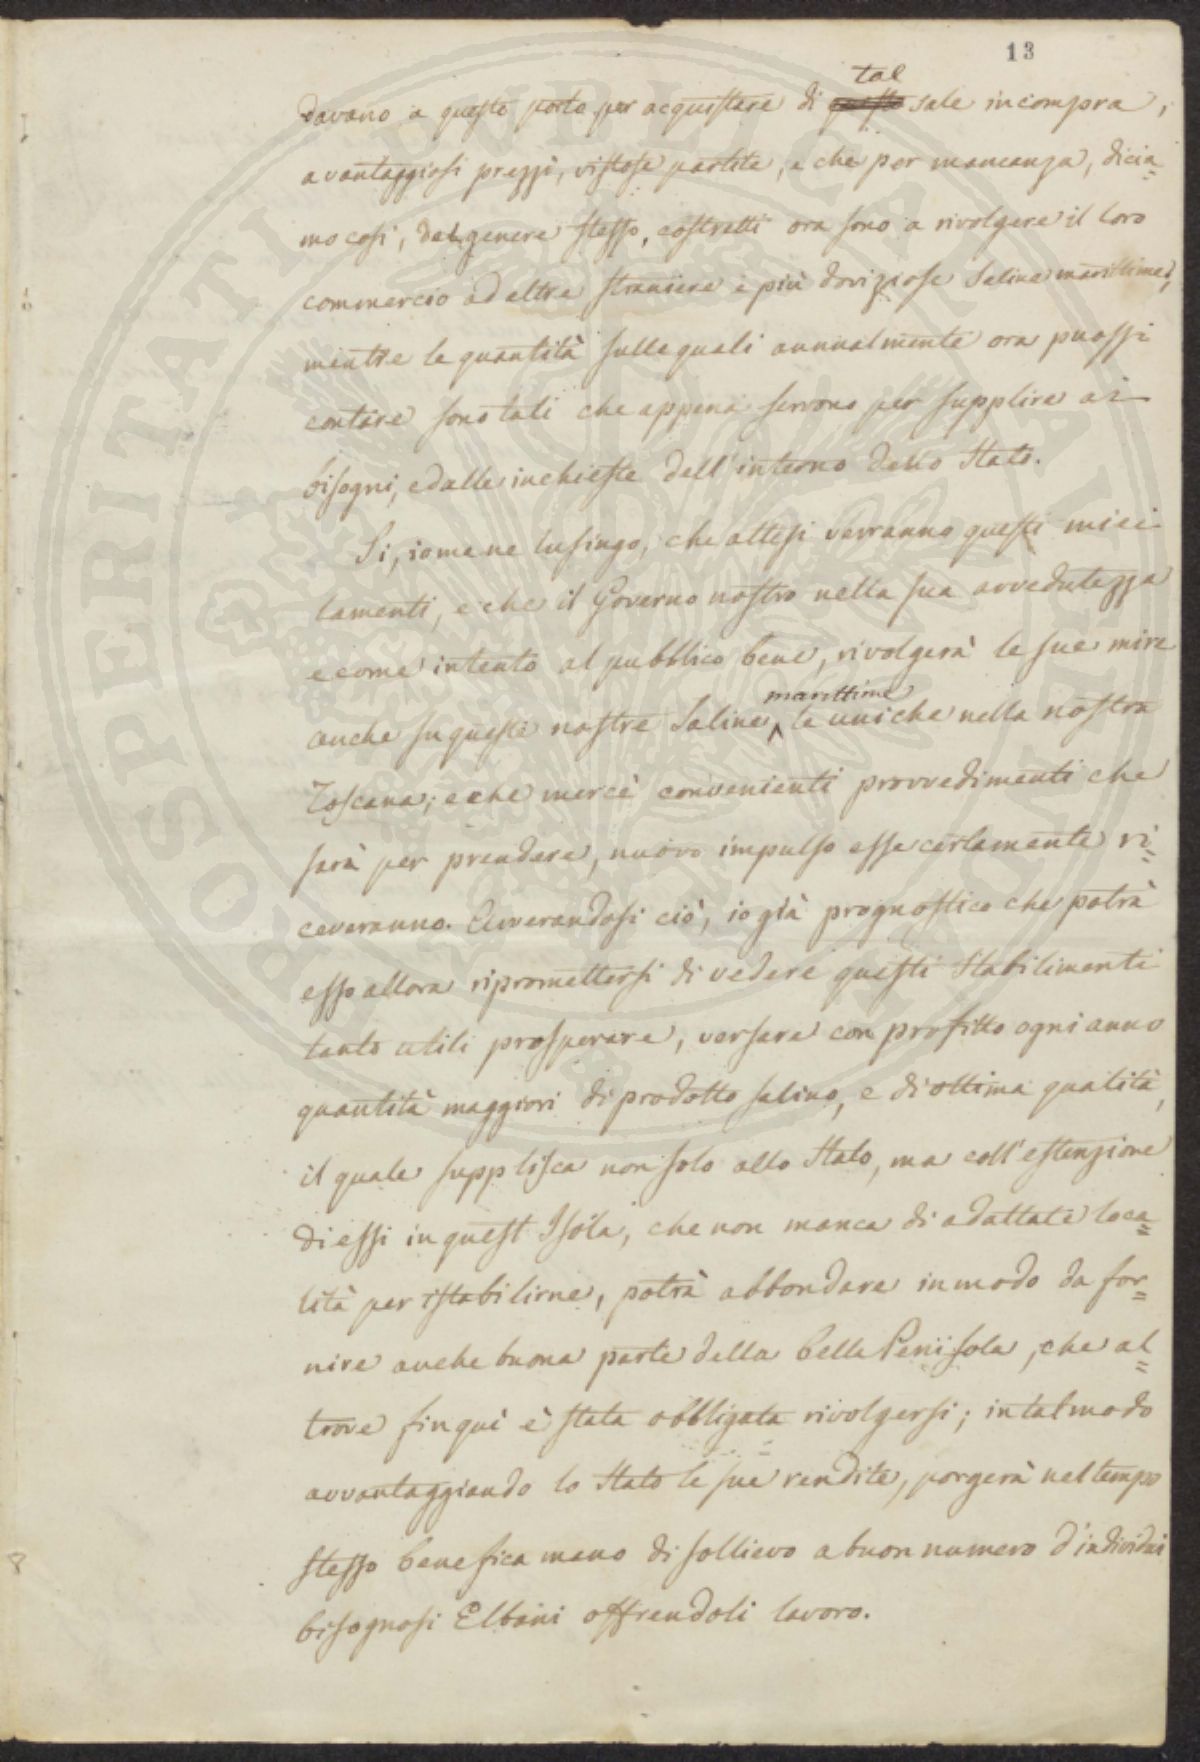 13
davano a questo porto per acquistare di tal sale incompra,
avantaggiosi prezzi, vistose partite, e che per mancanza, dicia=
mo cosi, del genere stesso, costretti ora sono a rivolgere il loro
commercio ad altre straniere e più doviziose Saline marittime;
mentre le quantità sulle quali annualmente ora puossi
contare sono tali che appena servono per supplire ai
bisogni, ed alle inchieste dell'interno dello Stato.
Si, io me ne lusingo, che attesi verranno questi miei
lamenti, e che il Governo nostro nella sua avvedutezza
e come intento al pubblico bene, rivolgerà le sue mire
anche su queste nostre Saline marittime le uniche nella nostra
Toscana; e che mercè convenienti provvedimenti che
sarà per prendere, nuovo impulso esse certamente ri=
ceveranno. Avverandosi ciò, io già prognostico che potrà
esso allora ripromettersi di vedere questi Stabilimenti
tanto utili prosperare, versare con profitto ogni anno
quantità maggiori di prodotto salino, e di ottima qualità,
il quale supplisca non solo allo Stato, ma coll'estenzione
di essi in quest Isola, che non manca di adattate loca=
lità per istabilirne, potrà abbondare in modo da for=
nire anche buona parte della bella Penisola, che al=
trove fin quì è stata obbligata rivolgersi; in tal modo
avvantaggiando lo Stato le sue rendite, porgerà nel tempo
stesso benefica mano di sollievo a buon numero d'individui
bisognosi Elbani offrendoli lavoro.
PROSPERITATI PUBLICAE AUGENDAE